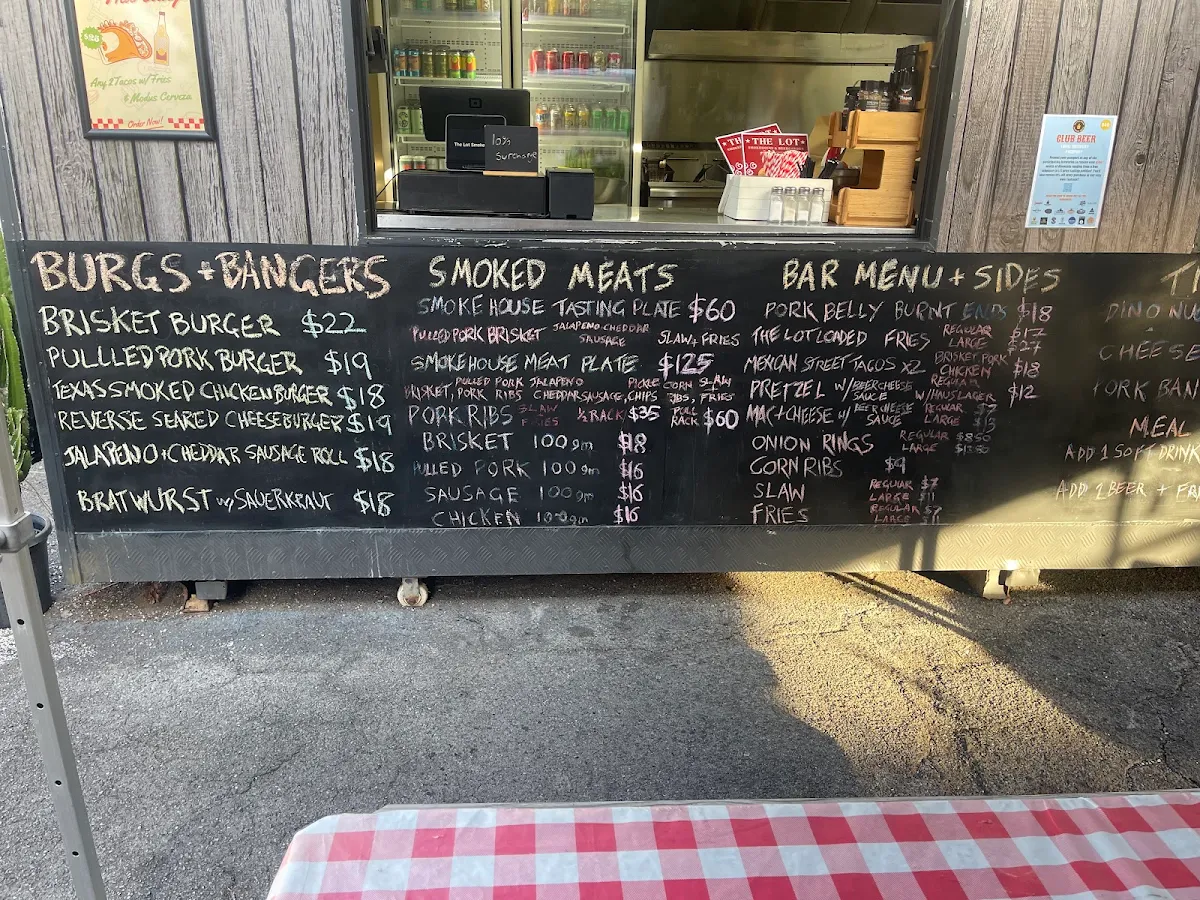 $28
Any 2 Tacos w/ Fries
& Modus Cerveza
Order Now!
The Lot Smoke
10%
Surcharge
THE LOT
CLUB BEER
BURGS + BANGERS
BRISKET BURGER $22
PULLLED PORK BURGER $19
TEXAS SMOKED CHICKEN BURGER $18
REVERSE SEARED CHEESEBURGER $19
JALAPENO + CHEDDAR SAUSAGE ROLL $18
BRATWURST w/ SAUERKRAUT $18
SMOKED MEATS
SMOKE HOUSE TASTING PLATE $60
PULLED PORK BRISKET JALAPENO CHEDDAR SAUSAGE SLAW + FRIES
SMOKEHOUSE MEAT PLATE $125
BRISKET, PORK RIBS PULLED PORK JALAPENO CHEDDAR SAUSAGE, PICKLE CHIPS CORN RIBS, SLAW FRIES
PORK RIBS SLAW FRIES 1/2 RACK $35 FULL RACK $60
BRISKET 100gm $18
PULLED PORK 100gm $16
SAUSAGE 100gm $16
CHICKEN 100gm $16
BAR MENU + SIDES
PORK BELLY BURNT ENDS $18
THE LOT LOADED FRIES REGULAR $17
LARGE $27
MEXICAN STREET TACOS X2 BRISKET PORK CHICKEN $18
PRETZEL W/ BEER CHEESE SAUCE REGULAR W/ HAUS LAGER $12
MAC + CHEESE W/ BEER CHEESE SAUCE REGULAR $7
LARGE $13
ONION RINGS REGULAR $8.50
LARGE $13.50
CORN RIBS $9
SLAW REGULAR $7
LARGE $11
FRIES REGULAR $7
LARGE $11
DINO NU
CHEESE
PORK BAN
MEAL
ADD 1 SOFT DRINK
ADD 1 BEER + FR